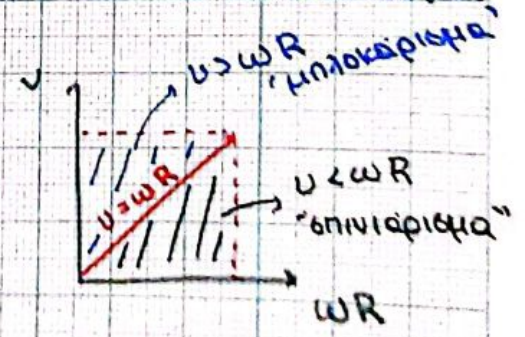 υ > ωR
"μπλοκάρισμα"
υ
υ = ωR
υ < ωR
"σπινιάρισμα"
ωR